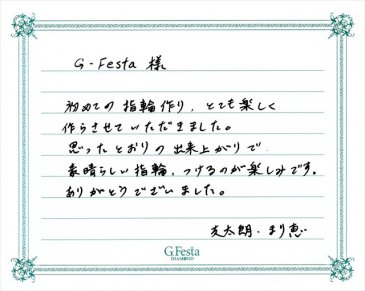 G-Festa 様
初めての指輪作り、とても楽しく
作らさせていただきました。
思ったとおりの出来上がりで
素晴らしい指輪、つけるのが楽しみです。
ありがとうございました。
友太朗・まり恵
G.Festa
DIAMOND